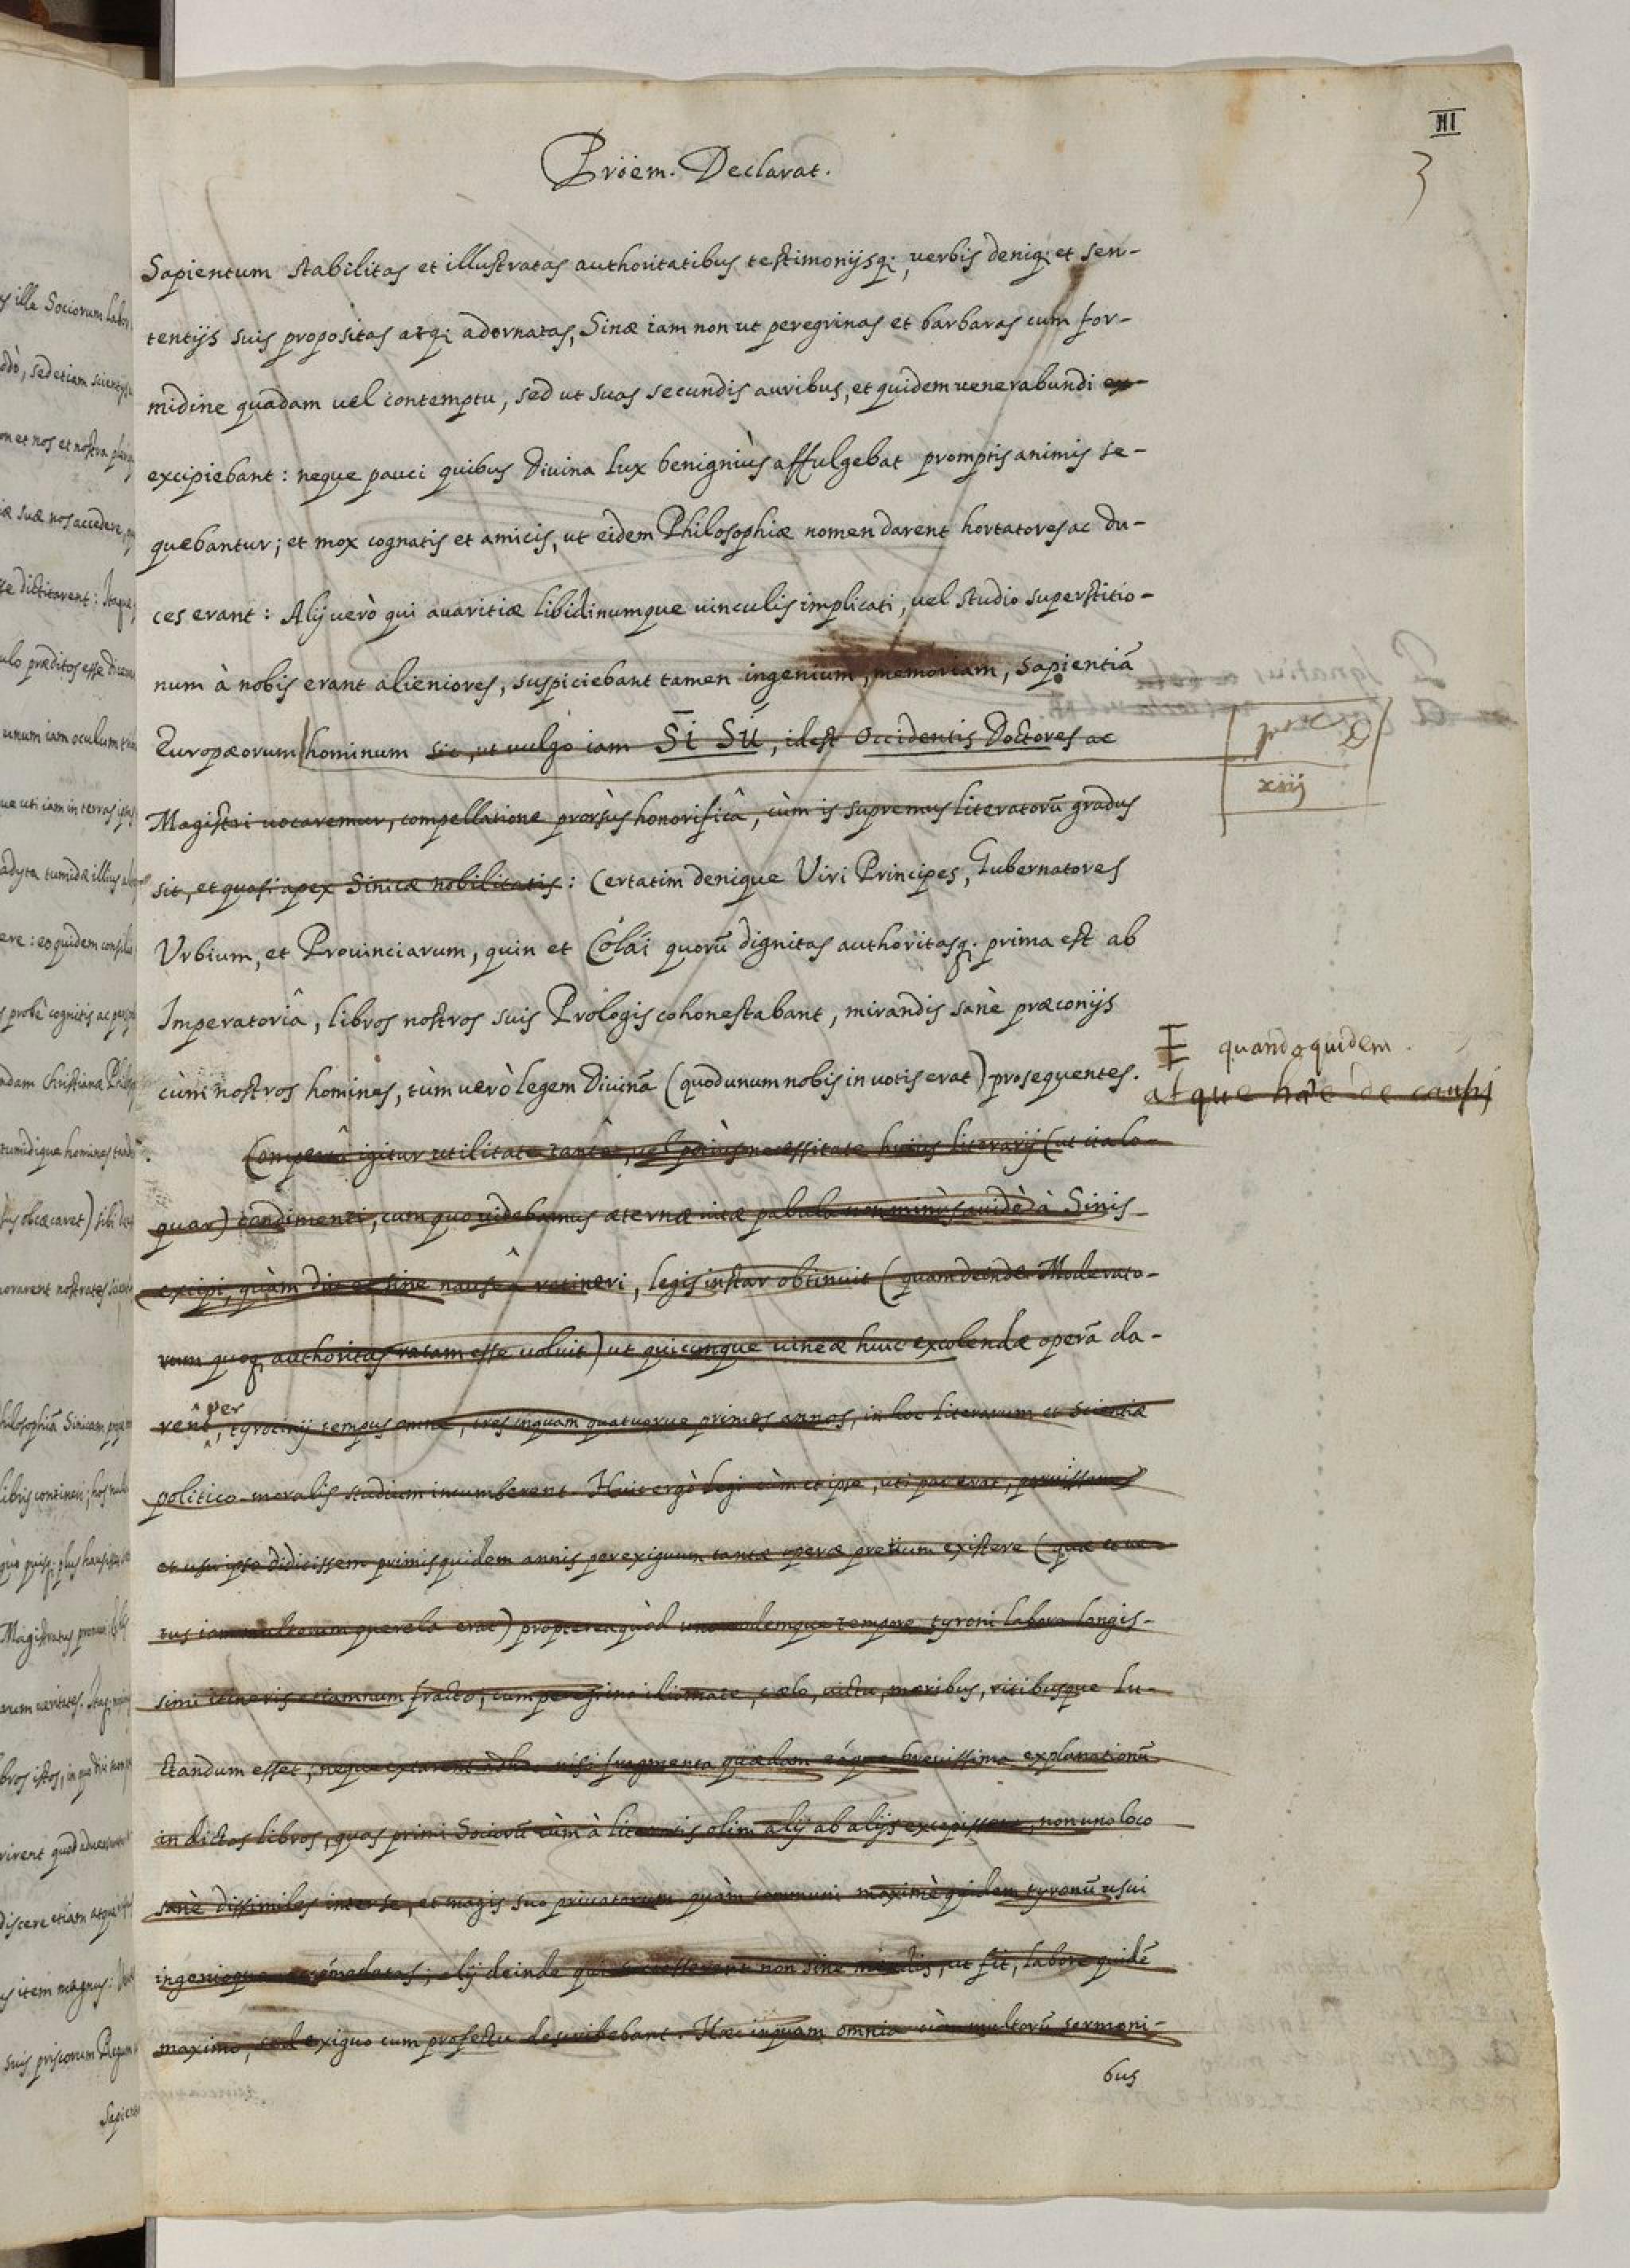 III
3
Pröem. Declarat.
Sapientum stabilitas et illustratas authoritatibus testimonijsq;, verbis deniq; et sen-
tentijs suis propositas atq; adornatas, Sinæ iam non ut peregrinas et barbaras cum for-
midine quadam vel contemptu, sed ut suas secundis auribus, et quidem venerabundi ex-
excipiebant: neque pauci quibus Divina lux benigniùs affulgebat promptis animis se-
quebantur; et mox cognatis et amicis, ut eidem Philosophiæ nomen darent hortatores ac du-
ces erant: Alij verò qui avaritiæ libidinumque vinculis implicati, vel studio superstitio-
num à nobis erant alieniores, suspiciebant tamen ingenium, memoriam, sapientiã
Europæorum hominum sic, ut vulgò iam Sī Sú, idest Occidentis Doctores ac
xiij
Magistri vocaremur, compellatione prorsùs honorificâ, cùm is supremus literatorũ gradus
sit, et quasi apex Sinicæ nobilitatis: Certatim denique Viri Principes, Gubernatores
Urbium, et Provinciarum, quin et Colái quorũ dignitas authoritasq; prima est ab
Imperatoriâ, libros nostros suis Prologis cohonestabant, mirandis sanè præconijs
quandoquidem.
cùm nostros homines, tùm verò legem Divinã (quod unum nobis in votis erat) prosequentes.
atque hæc de causis
Compertâ igitur utilitate tantâ, vel potiùs necessitate huius literarij (ut ita lo-
quar) condimenti, cum quo videbamus æternæ vitæ pabula non minùs avidè à Sinis
excipi, quàm diu et sine nauseâ retineri, legis instar obtinuit (quam deinde Moderato-
rum quoq; authoritas ratam esse voluit) ut quicunque vineæ huic excolendæ operã da-
rent, per tyrocinij tempus omne, tres inquam quatuorve primos annos, in hoc literarum et scientiæ
politico-moralis studium incumberent. Huic ergò legi cùm et ipse, uti par erat, paruissem
et usu ipso didicissem primis quidem annis perexiguum tantæ operæ pretium existere (quæ et ve-
tus iam multorum querela erat) proptereaquòd uno eodemque tempore tyroni labore longis-
simi itineris etiamnum fracto, cum peregrino idiomate, cælo, victu, moribus, ritibusque lu-
ctandum esset, neque extarent adhuc nisi fragmenta quædam eáque brevissima explanationũ
in dictos libros, quas primi Sociorũ cùm à literatis olim alij ab alijs excepissent, non uno loco
sanè dissimiles inter se, et magis suo privatorum quàm communi maximè quidem tyronũ usui
ingenioque accõmodatas; alij deinde qui successerant non sine mendis, ut fit, labore quidẽ
maximo, sed exiguo cum profectu describebant. Hæc inquam omnia cùm multorũ sermoni-
bus